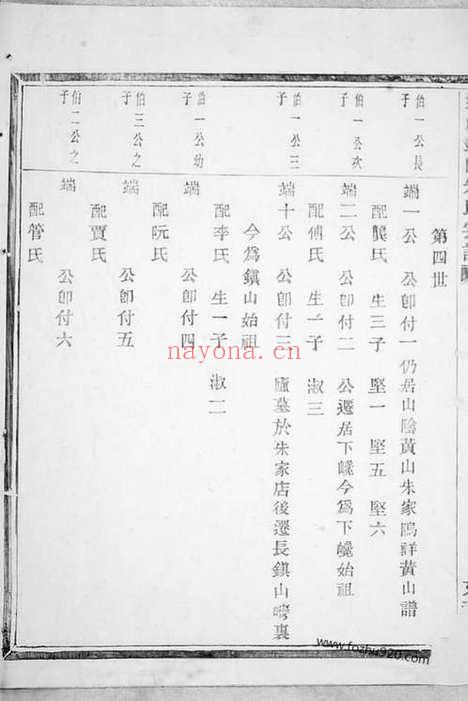 第四世
伯一公長
子
端一公 公卽付一仍居山陰黃山朱家塢詳黃山譜
配龔氏 生三子 堅一 堅五 堅六
伯一公次
子
端二公 公卽付二 公遷居下㟒今爲下㟒始祖
配傅氏 生一子 淑三
伯一公三
子
端十公 公卽付三 廬墓於朱家店後遷長鎮山灣裏
今爲鎮山始祖
配李氏 生一子 淑二
伯一公幼
子
端 公卽付四
配阮氏
伯三公之
子
端 公卽付五
配賈氏
伯二公之
子
端 公卽付六
配管氏
nayona.cn
www.fozhu920.com